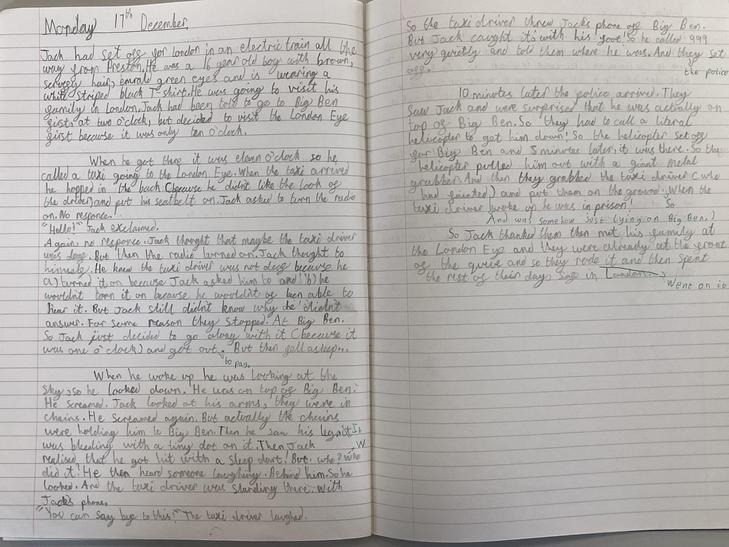 Monday 17th December,
Jack had set off for london in an electric train all the
way from Preston. He was a 16 year old boy with brown,
scruvey hair, emrald green eyes and is wearing a
white striped black T-shirt. He was going to visit his
family in london. Jack had been told to go to Big Ben
first, at two o'clock, but decided to visit the London Eye
first because it was only ten o'clock.
When he got there it was eleven o'clock so he
called a taxi going to the London Eye. When the taxi arrived
he hopped in the back (because he didn't like the look of
the driver) and put his seatbelt on. Jack asked to turn the radio
on. No responce!
"Hello!" Jack exclaimed.
Again no responce. Jack thought that maybe the taxi driver
was deaf. But then the radio turned on. Jack thought to
himself. He knew the taxi driver was not deaf because he
a) turned it on because Jack asked him to and b) he
wouldn't torn it on because he wouldn't of ben able to
hear it. But Jack still didn't know why he didn't
answer. For some reason they stopped. At Big Ben.
So Jack just decided to go along with it (because it
was one o'clock) and got out. But then fell asleep...
to pay,
When he woke up he was looking at the
sky so he looked down. He was on top of Big Ben!
He screamed. Jack looked at his arms, they were in
chains. He screamed again. But actually the chains
were holding him to Big Ben. Then he saw his leg. It
was bleeding with a tiny dot on it. Then Jack
realised that he got hit with a sleep dart! But who? Who
did it! He then heard someone laughing. Behind him. So he
looked. And the taxi driver was standing there. With
Jack's phone.
"You can say bye to this!" The taxi driver laughed.
So the taxi driver threw Jacks phone off Big Ben.
But Jack caught it with his foot! So he called 999
very quietly and told them where he was. And they set
off.
the police
10 minutes later the police arrived. They
saw Jack and were surprised that he was actually on
top of Big Ben. So they had to call a literal
helicopter to got him down! So the helicopter set off
for Big Ben and 5 minutes later it was there. So the
helicopter pulled him out with a giant metal
grabber. And then they grabbed the taxi driver (who
had fainted) and put them on the ground. When the
taxi driver woke up he was in prison! So
And was somehow just lying on Big Ben.)
So Jack thanked them then met his family at
the London Eye and they were already at the front
of the queue and so they rode it and then spent
the rest of their day in London
Went on to